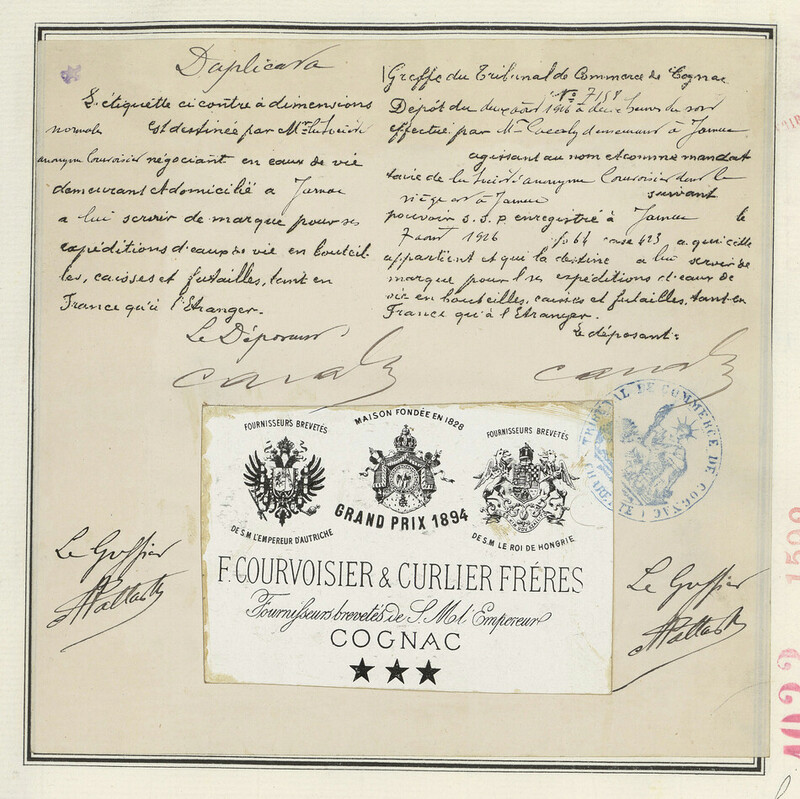 Duplicata
L'étiquette ci contre à dimensions
normales Est destinée par Mr la Société
anonyme Courvoisier négociant en eaux de vie
demeurant et domicilié a Jarnac
a lui servir de marque pour ses
expéditions d'eaux de vie en bouteil-
les, caisses et futailles, tant en
France qu'à l'Etranger.
Le Déposant
Greffe du Tribunal de Commerce de Cognac
No 7158
Dépôt du deux août 1916 à deux heures du soir
effectué par Mr demeurant à Jarnac
agissant au nom et comme mandat
taire de la Société anonyme Courvoisier dont le
siège est à Jarnac suivant
pouvoir s.s.p enregistré à Jarnac le
7 août 1916 fo 64 case 423 a qui elle
appartient et qui la destine a lui servir de
marque pour les expéditions d'eaux de
vie en bouteilles, caisses et futailles, tant en
France qu'à l'Etranger.
Le déposant:
TRIBUNAL DE COMMERCE DE COGNAC
FOURNISSEURS BREVETÉS
MAISON FONDÉE EN 1828
FOURNISSEURS BREVETÉS
DE S.M. L'EMPEREUR D'AUTRICHE
GRAND PRIX 1894
DE S.M. LE ROI DE HONGRIE
F. COURVOISIER & CURLIER FRÉRES
Fournisseurs brevetés de S. M. l'Empereur
COGNAC
Le Greffier
Le Greffier